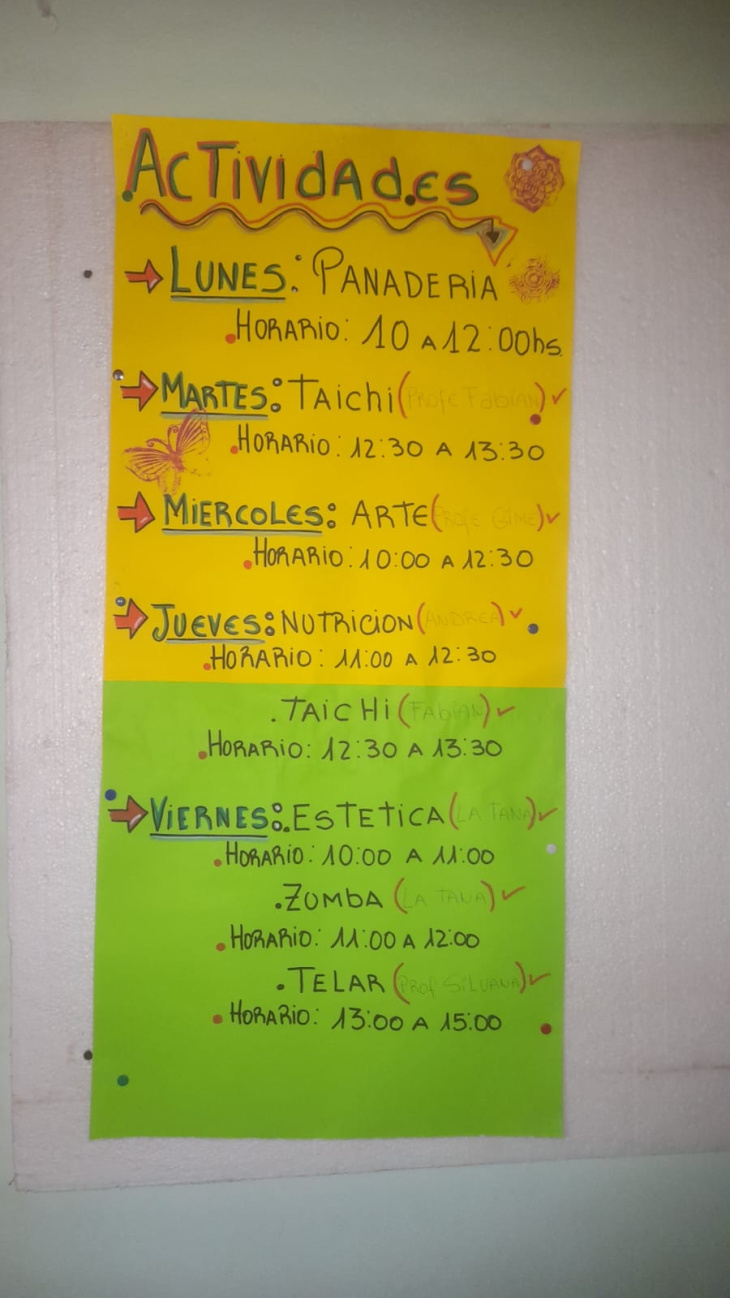 ACTIVIDADES
LUNES: PANADERIA
HORARIO: 10 A 12:00hs.
MARTES: TAichi (PROFE FABIAN)
HORARIO: 12:30 A 13:30
MIERCOLES: ARTE (PROFE GIME)
HORARIO: 10:00 A 12:30
JUEVES: NUTRICION (ANDREA)
HORARIO: 11:00 A 12:30
.TAICHI (FABIAN)
HORARIO: 12:30 A 13:30
VIERNES: .ESTETICA (LA TANA)
HORARIO: 10:00 A 11:00
.ZUMBA (LA TANA)
HORARIO: 11:00 A 12:00
.TELAR (PROF SILVANA)
HORARIO: 13:00 A 15:00